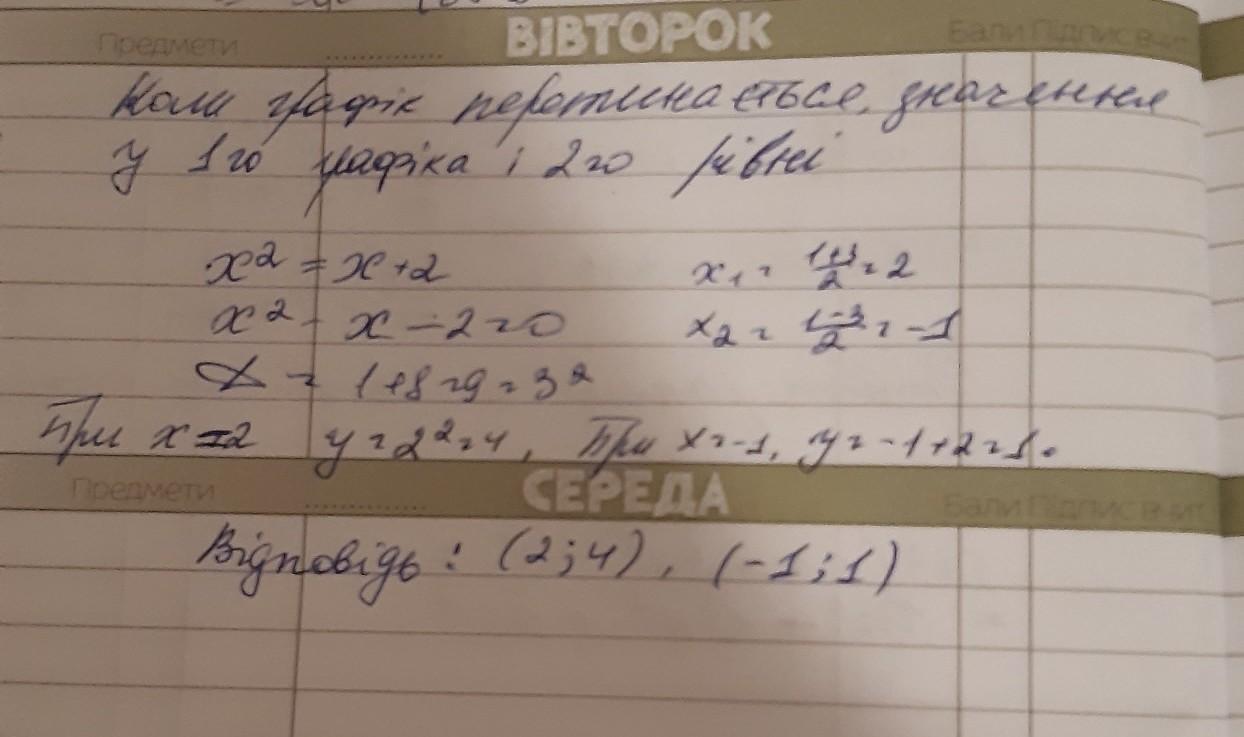 Предмети ВІВТОРОК Бали Підпис вчит
Коли графік перетинається, значення
y 1го графіка і 2го рівні
x² = x+2 x₁ = (1+3)/2 = 2
x² - x - 2 = 0 x₂ = (1-3)/2 = -1
D = 1+8=9=3²
При x=2 y=2²=4, При x=-1, y=-1+2=1.
Предмети СЕРЕДА Бали Підпис вчит
Відповідь: (2;4), (-1;1)